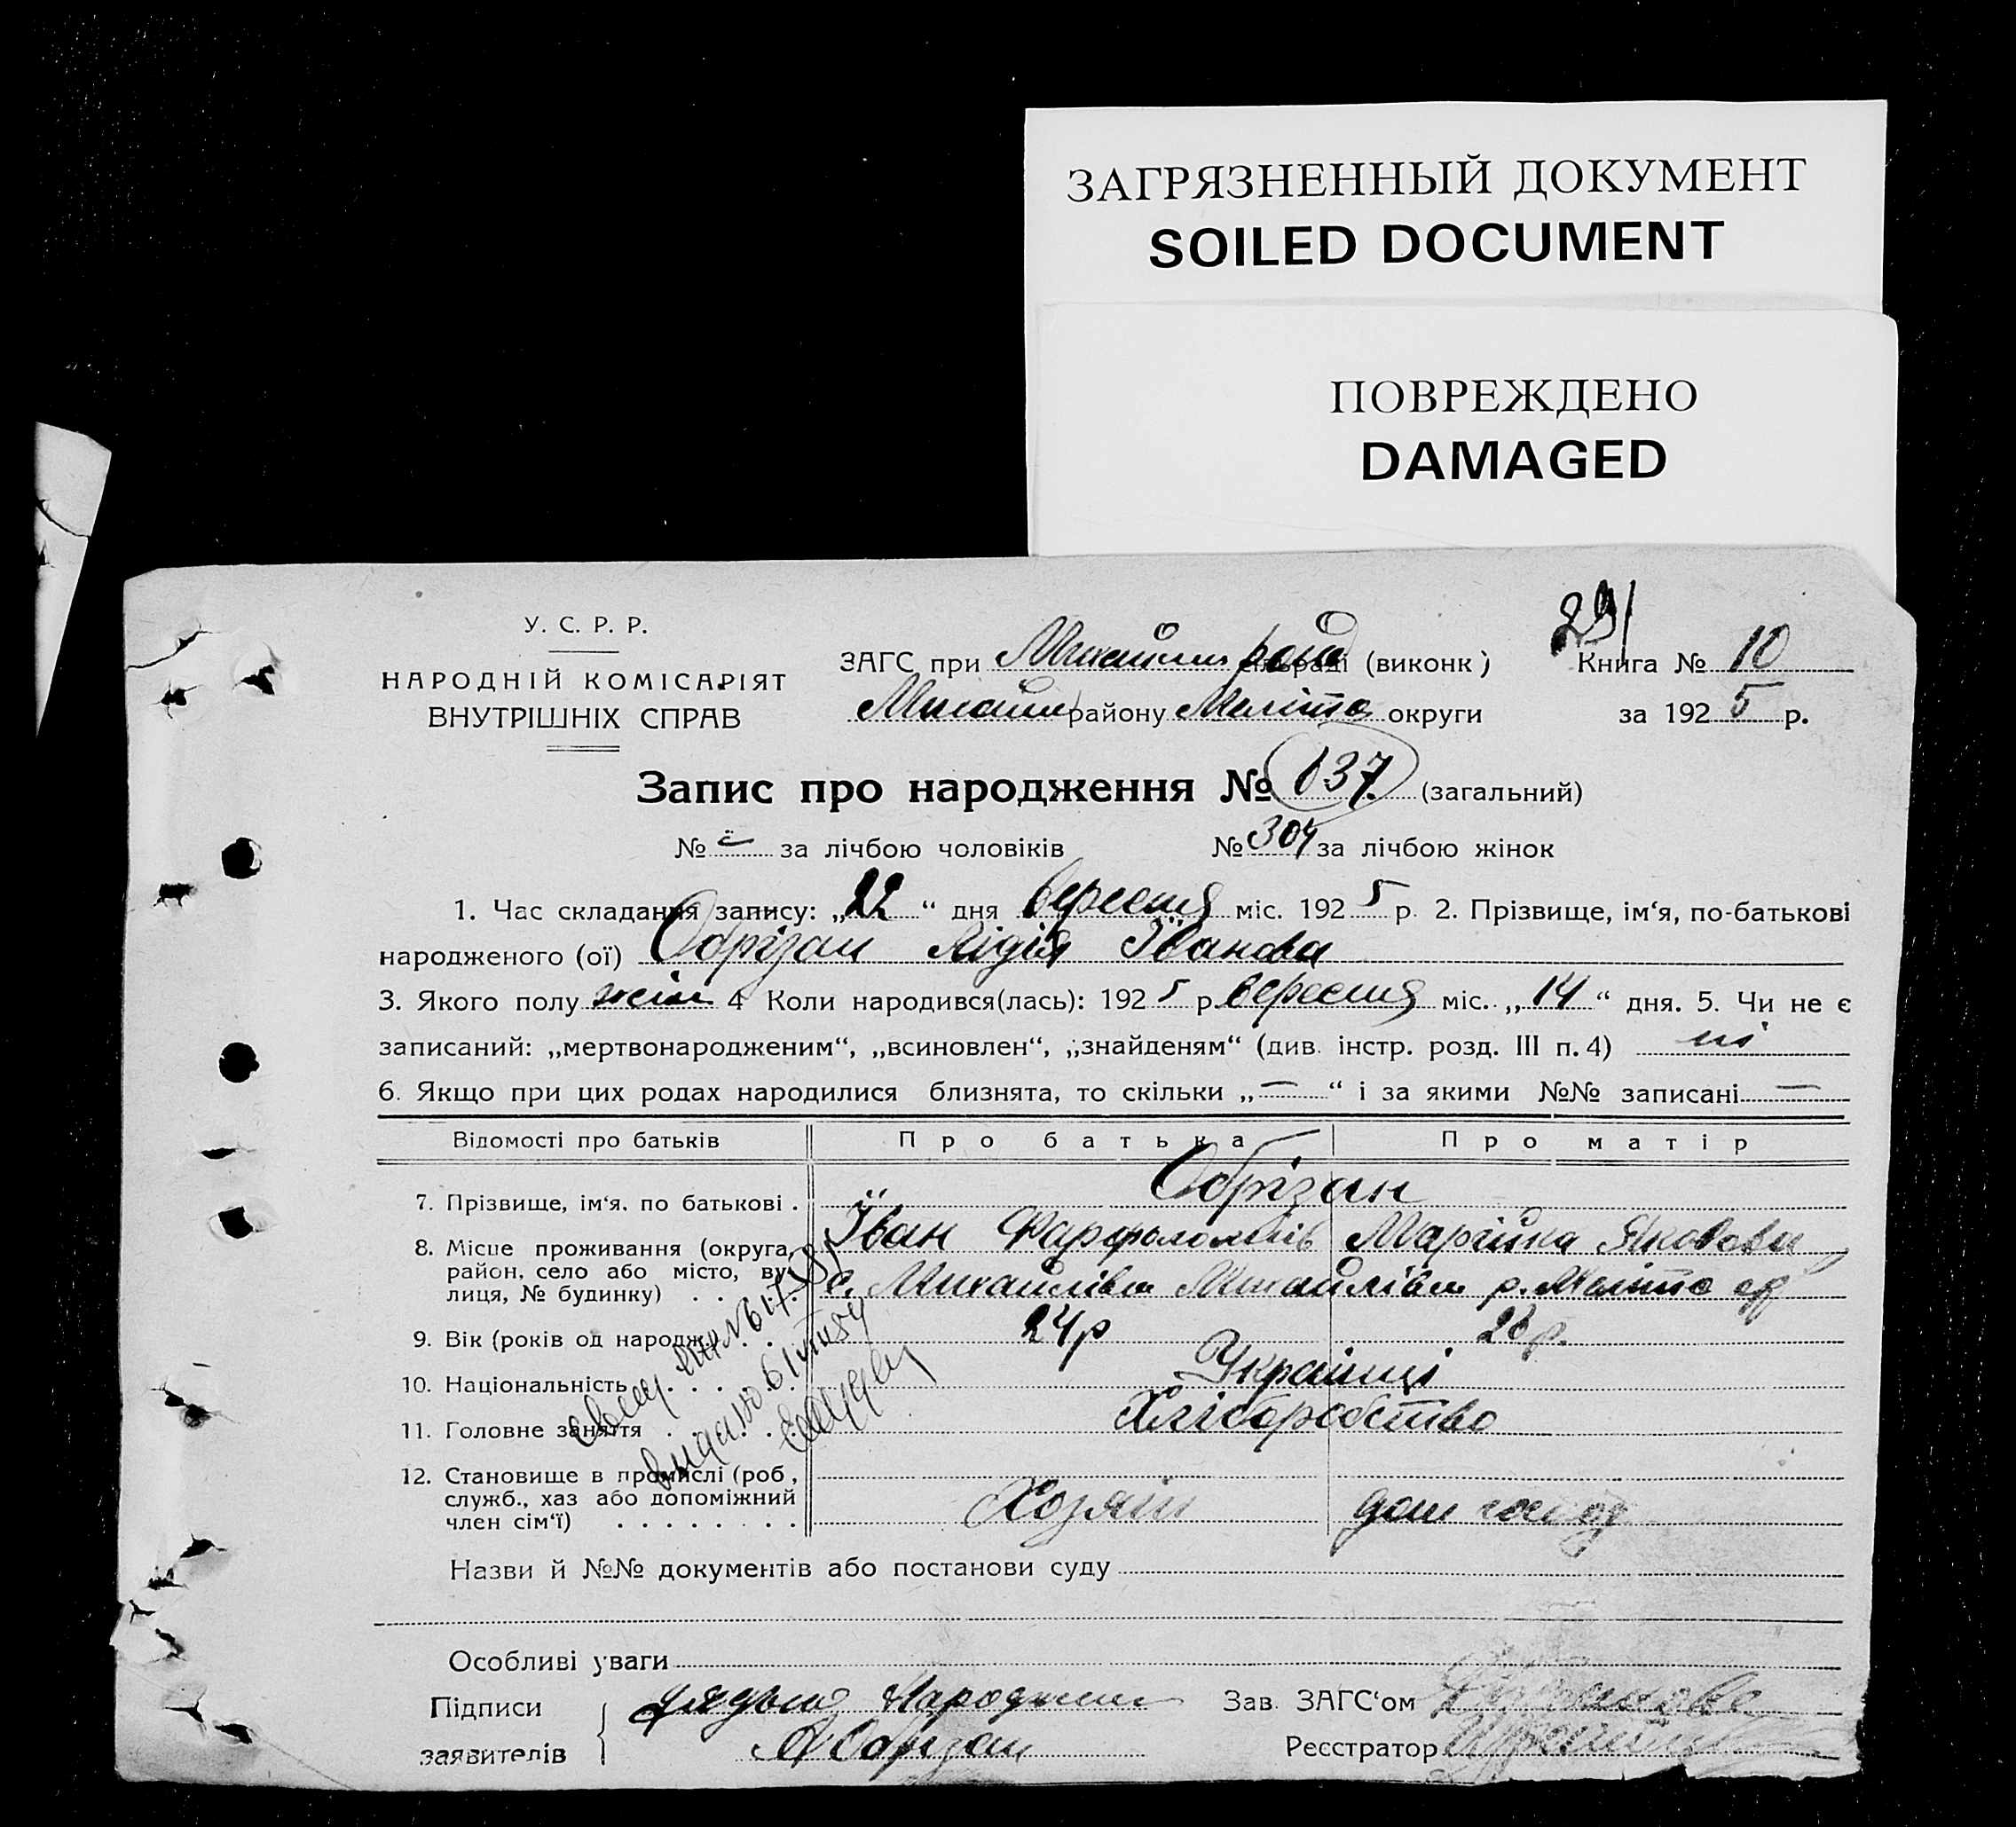 ЗАГРЯЗНЕННЫЙ ДОКУМЕНТ
SOILED DOCUMENT
ПОВРЕЖДЕНО
DAMAGED
У. С. Р. Р.
НАРОДНІЙ КОМІСАРІЯТ
ВНУТРІШНІХ СПРАВ
291
ЗАГС при Михайлів рай сільраді (виконк) Книга № 10
Михайлів району Меліто округи за 1925 р.
Запис про народження № 637 (загальний)
№ за лічбою чоловіків № 304 за лічбою жінок
1. Час складання запису: „22“ дня вересня міс. 1925 р. 2. Прізвище, ім‘я, по-батькові
народженого (ої) Обрізан Лідія Іванова
3. Якого полу жін 4 Коли народився(лась): 1925 р. вересня міс. „14“ дня. 5. Чи не є
записаний: „мертвонародженим“, „всиновлен“, „знайденям“ (див. інстр. розд. III п. 4) ні
6. Якщо при цих родах народилися близнята, то скільки „—“ і за якими №№ записані —
Відомості про батьків Про батька Про матір
7. Прізвище, ім‘я, по батькові . Обрізан
Іван Фарфоломіїв Марійка Яковова
8. Місце проживання (округа, район, село або місто, вулиця, № будинку) . . с. Михайлівка Михайлівк р. Меліто окр
9. Вік (років од народж.) 24р 23 р.
10. Національність Українці
11. Головне заняття Хліборобство
12. Становище в промислі (роб,
служб., хаз або допоміжний
член сім‘ї) Хозяїн дом господ
Назви й №№ документів або постанови суду
Особливі уваги
Підписи
заявителів Обрізан
Зав. ЗАГС‘ом
Реєстратор